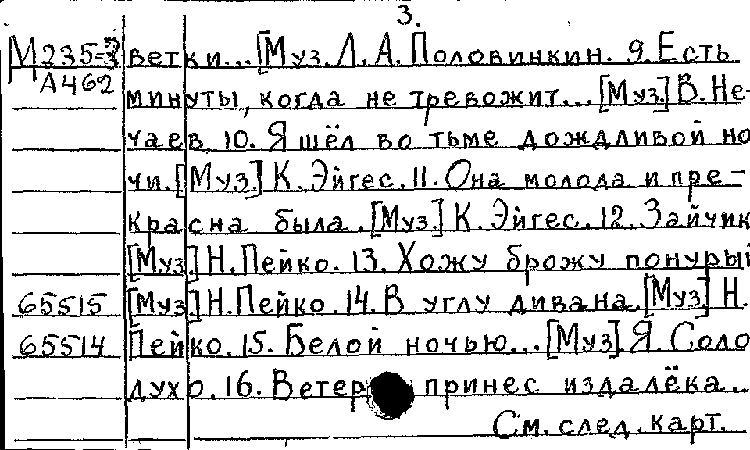 3.
М235-3 ветки... [Муз. Л. А. Половинкин. 9. Есть
А462 минуты, когда не тревожит... [Муз.] В. Не-
чаев. 10. Я шёл во тьме дождливой но
чи. [Муз.] К. Эйгес. 11. Она молода и пре-
красна была. [Муз.] К. Эйгес. 12. Зайчик
[Муз.] Н. Пейко. 13. Хожу брожу понурый
65515 [Муз.] Н. Пейко. 14. В углу дивана. [Муз.] Н.
65514 Пейко. 15. Белой ночью... [Муз.] Я. Соло
духо. 16. Ветер принес издалёка...
См. след. карт.